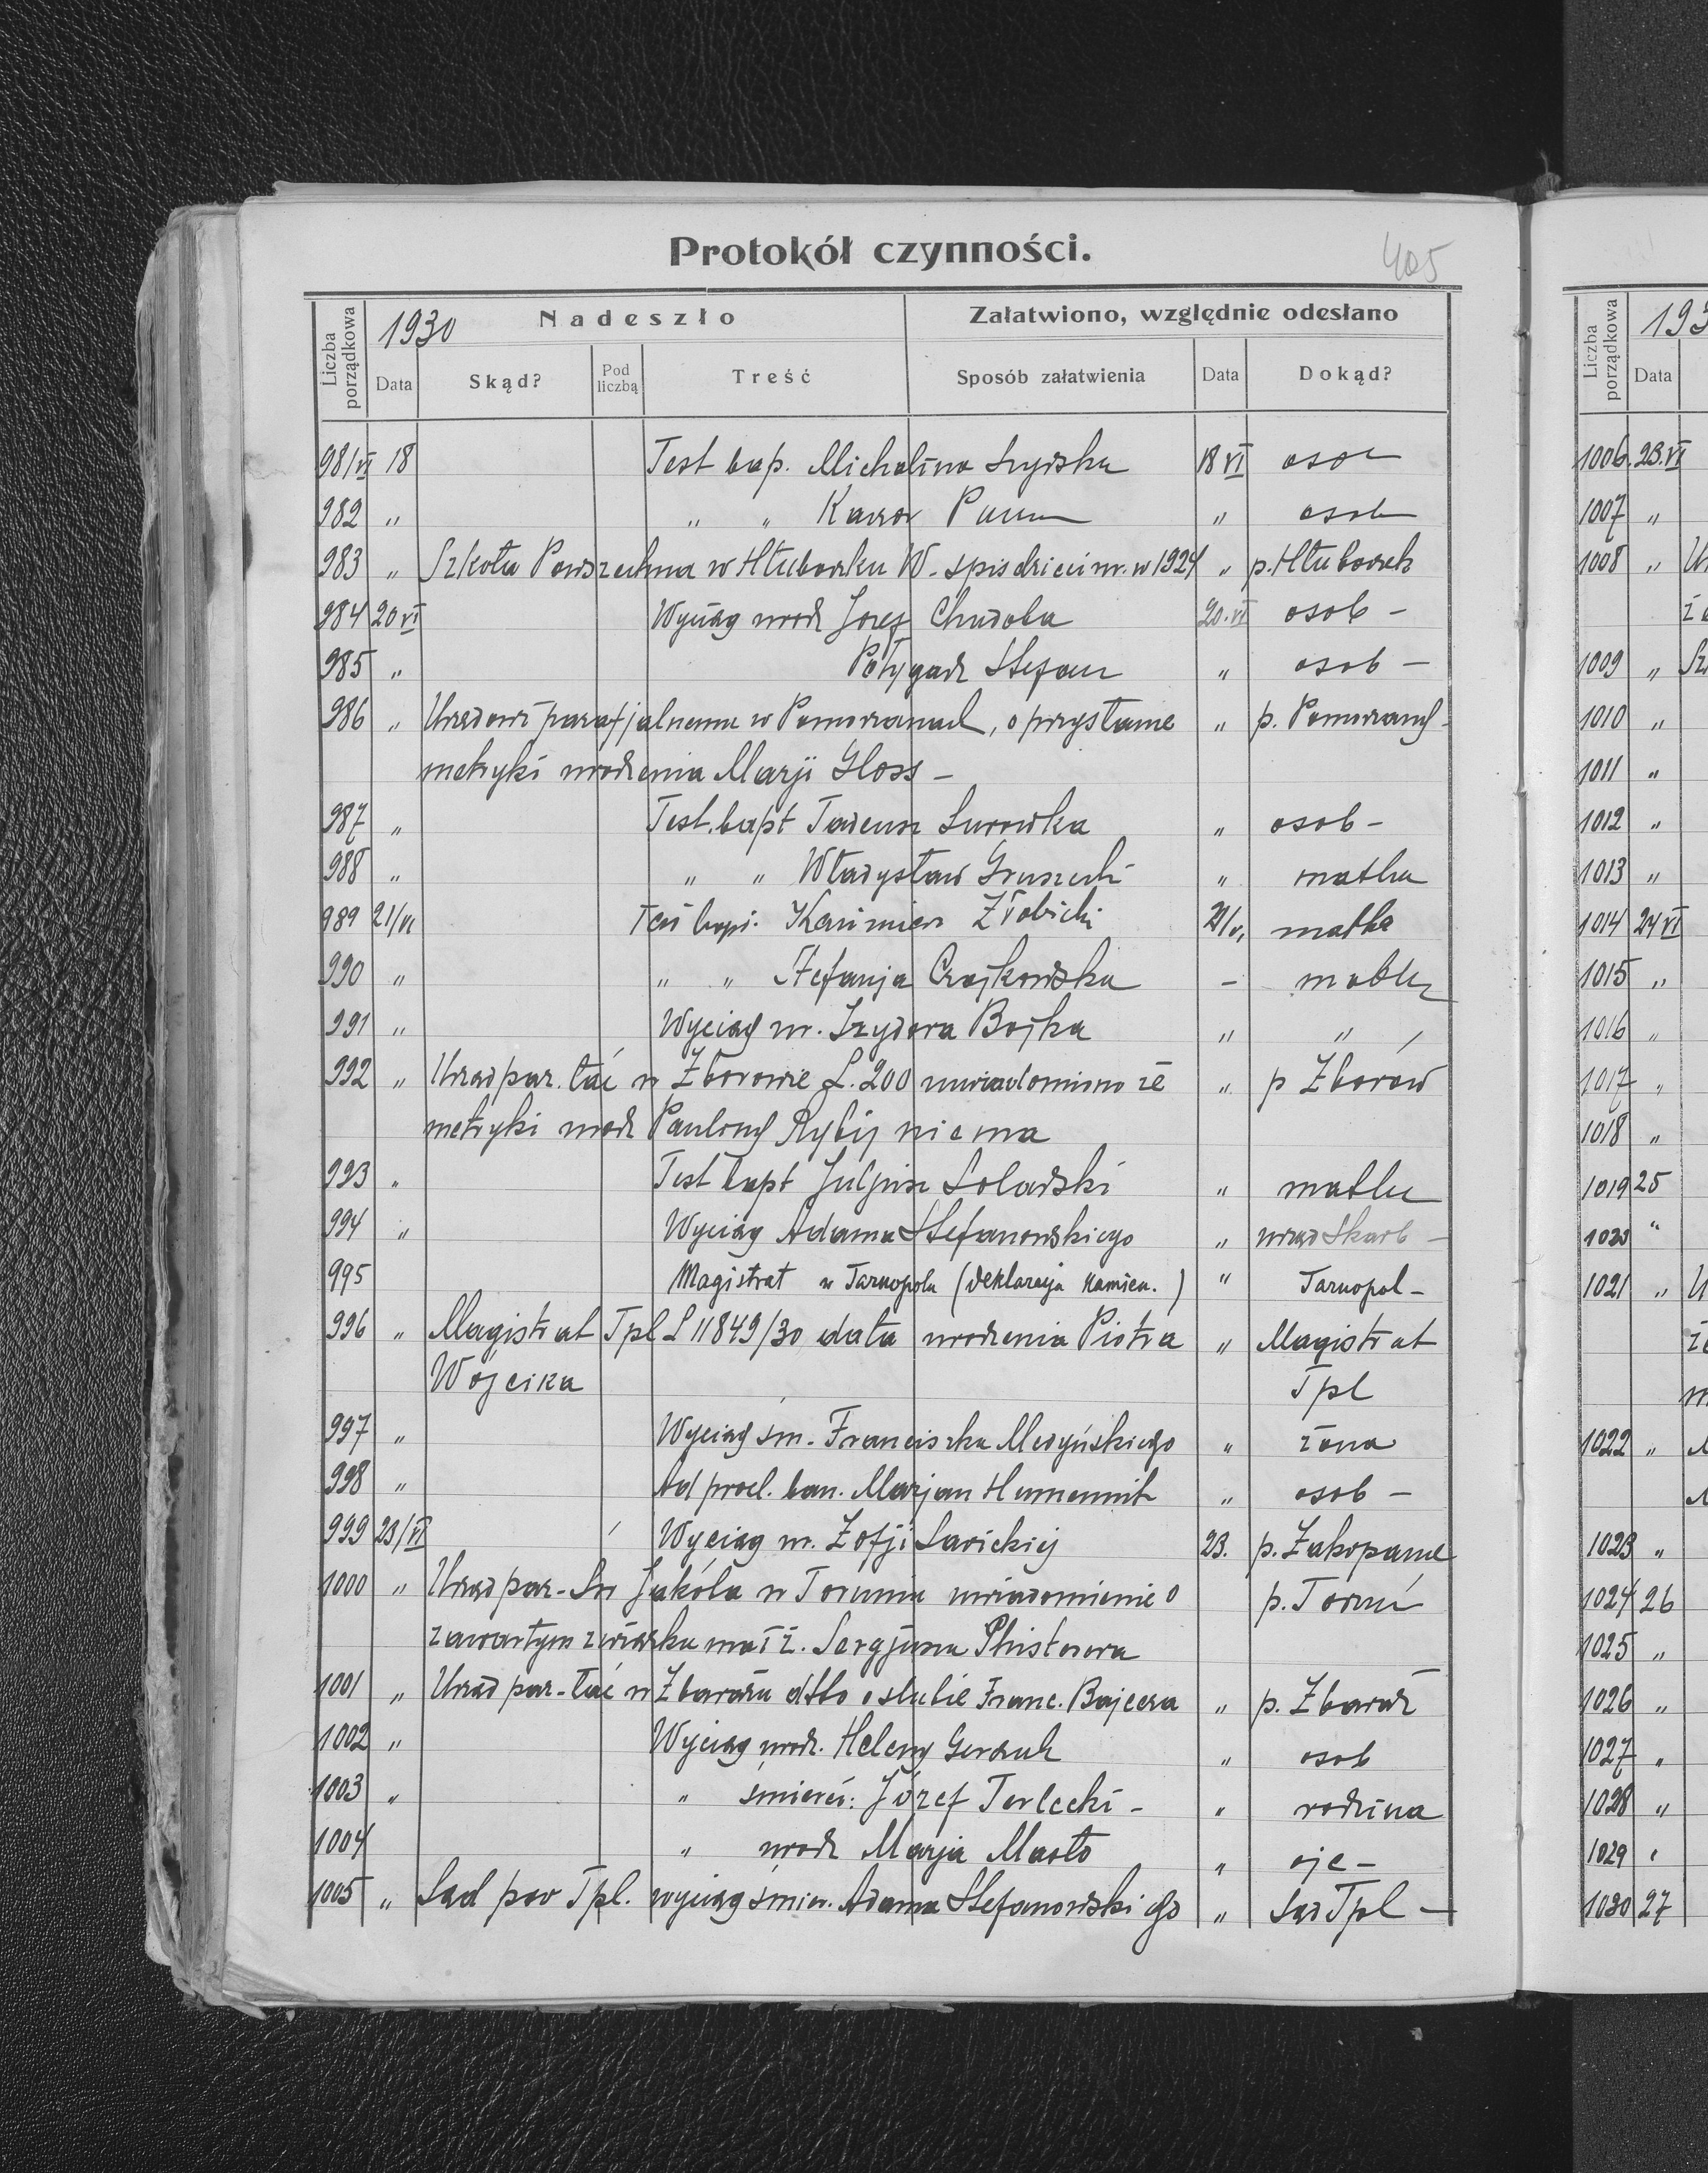 Protokół czynności.
405
Liczba porządkowa
1930
Nadeszło
Załatwiono, względnie odesłano
Data Skąd? Pod liczbą Treść Sposób załatwienia Data Dokąd?
981/VI 18 Test bap. Michalina 18 VI
982 " " " " osob
983 " Szkoła Powszechna w Hłuboczku W. spis dzieci ur. w 1924 " p. Hłuboczek
984 20 VI Wyciąg urodz Józef Chudoba 20.VI osob -
985 " Stefan " osob -
986 " Urzędowi parafjalnemu w Pomorzanach, o przysłanie " p. Pomorzany -
metryki urodzenia Marji Gloss -
987 " Test. bapt Tadeusz Surowka " osob -
988 " " " Władysław Gruszecki " matka
989 21/VI Kazimierz Żłobicki 21/VI matka
990 " " " Stefanja Czajkowska - matka
991 " Wyciąg ur. Izydora Bojka " "
992 " Urząd par. łać w Zborowie L. 200 uwiadomiono że " p Zborów
metryki urodz Pauliny Ryby niema
993 " Test bapt Juljusz Solarski " matka
994 " Wyciąg Adama Stefanowskiego " urząd Skarb -
995 Magistrat w Tarnopolu (deklaracja kamien.) " Tarnopol -
996 " Magistrat Tpl L 11849/30 data urodzenia Piotra " Magistrat
Wójcika Tpl
997 " Wyciąg śm. Franciszka Medyńskiego " żona
998 " Ad procl. ban. Marjan Humennik " osob -
999 23/VI Wyciąg ur. Zofji Sawickiej 23. p. Zakopane
1000 " Urząd par. Św Jakóba w Toruniu uwiadomienie o p. Toruń
zawartym związku małż. Sergjusza
1001 " Urząd par. łać w Zbarażu dtto o ślubie Franc. Bajcera " p. Zbaraż
1002 " Wyciąg urodz. Heleny " osob
1003 " " śmierci: Józef Terlecki - " rodzina
1004 " urodz Marja Masło " ojc -
1005 " Sąd pow Tpl. wyciąg śmier. Adama Stefanowskiego " Sąd Tpl -
Liczba porządkowa
193
Data
1006 23.VI
1007 "
1008 "
1009 "
1010 "
1011 "
1012 "
1013 "
1014 24 VI
1015 "
1016 "
1017 "
1018 "
1019 25
1020 "
1021 "
1022 "
1023 "
1024 26
1025 "
1026 "
1027 "
1028 "
1029 "
1030 27